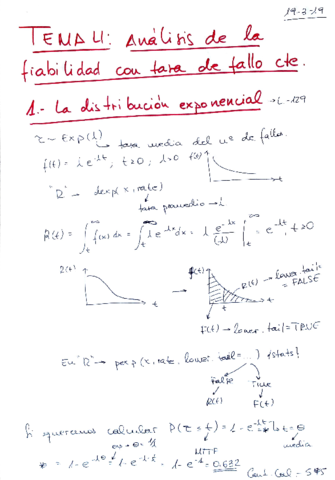 19-3-19
TEMA 4: Análisis de la
fiabilidad con tasa de fallo cte.
1.- La distribución exponencial → L-129
τ ~ Exp(λ)
tasa media del nº de fallos.
f(t) = λ e^-λt, t≥0; λ>0 f(t)
t
"R" → dexp(x, rate)
tasa promedio → λ
R(t) = ∫_t^∞ f(x) dx = ∫_t^∞ λ e^-λx dx = λ e^-λx/(-λ) |_t^∞ = e^-λt, t≥0
R(t) → lower.tail = FALSE
t
F(t) → lower.tail = TRUE
En "R" → pexp(x, rate, lower.tail = ...) {stats}
False True
R(t) F(t)
Si queremos calcular P(τ ≤ t) = 1 - e^-λt
MTTF media
= 0.632